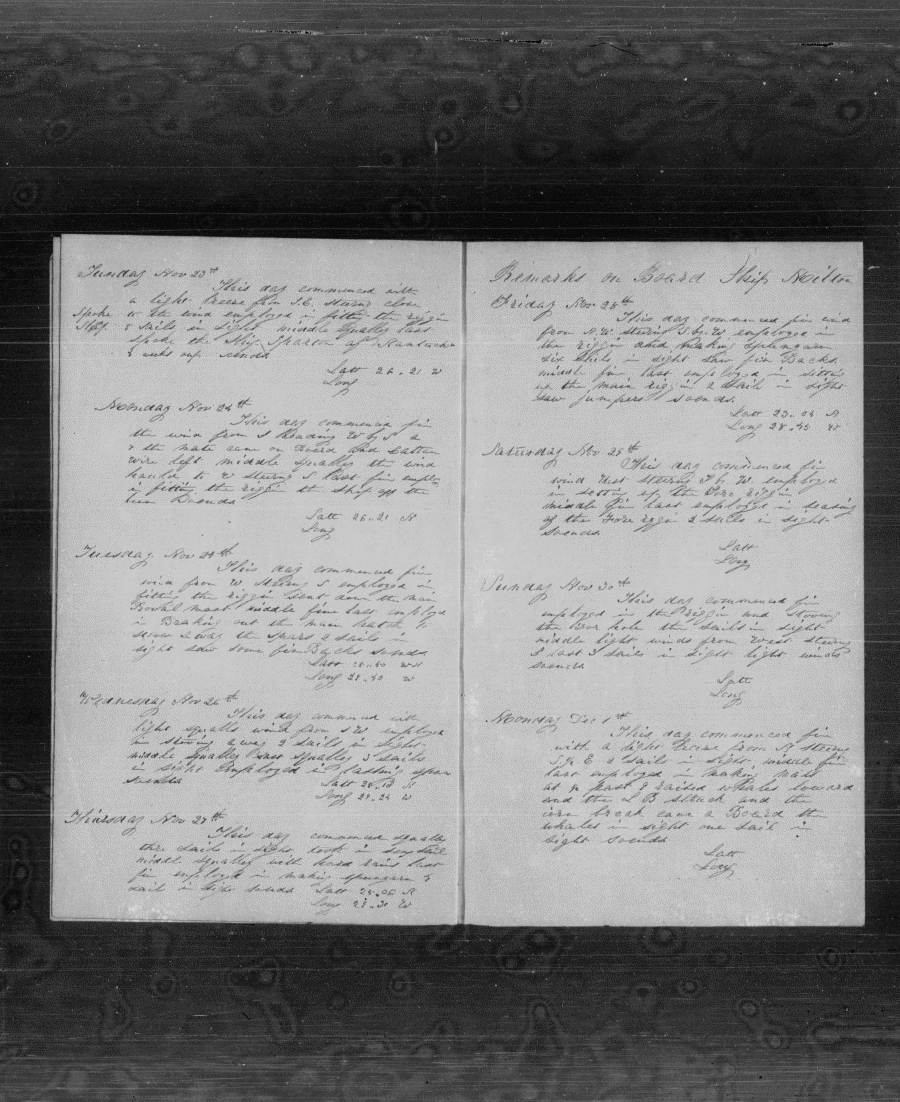 Sunday Nov 23th
This day commenced with
a light breeze from S.E. steering close
Spoke to the wind employed in fitting the riggin
Ship 8 sails in sight middle squally last
spoke the Ship Sparton of Nantucket
2 weks out sonds
Latt 26-21 N
Long
Monday Nov 24th
This day commenced fin
the wind from S Heading W by S a
the mate came on Board and
were left middle squally the wind
hauld to W stering S last fin employ
in fitting the riggin the ship of the
Sounds
Latt 26-21 N
Long
Tuesday Nov 25th
This day commenced fin
wind from W stering S employed in
fitting the riggin sent down the main
Royal mast middle fine last employd
in Braking out the main hatch to
stow away the spars 2 sails in
sight saw some fin Backs sonds
Latt
Long 29-40 W
Wednesday Nov 26th
This day commenced with
light squalls wind from SW employed
in stowing away 2 sails in sight
middle squally last squally 3 sails
in sight Employed in lashing spars
sounds
Latt N
Long W
Thursday Nov 27th
This day commenced squally
three sails in sight took in
middle squally with hard rains last
fin employed in making spunyarn 5
sail in sight sonds Latt 25-00 N
Long 28-30 W
Remarks on Board Ship Milton
Friday Nov 28th
This day commenced fin wind
from N.W. stering S. by. W employed in
the riggin and making spunyarn
six sails in sight saw fin Backs
middle fin last employed in sitting
up the main riggin 2 sail in sight
saw jumpers sonds.
Latt 23-04 N
Long 28-40 W
Saturday Nov 29th
This day commenced fin
wind West stering S by W employed
in setting up the Fore riggin
middle fin last employed in
of the Fore riggin 2 sails in sight
sounds
Latt
Long
Sunday Nov 30th
This day commenced fin
employed in the riggin and stowing
the Fore hole the sails in sight
middle light winds from West stering
S last 3 sails in sight light winds
sounds
Latt
Long
Monday Dec 1th
This day commenced fin
with a light Breeze from N stering
S.by E 2 sails in sight, middle fin
last employed in making
at ½ past 8 raised whales loward
and the L B struck and the
iron break came a Board the
whales in sight one sail in
sight sounds
Latt
Long